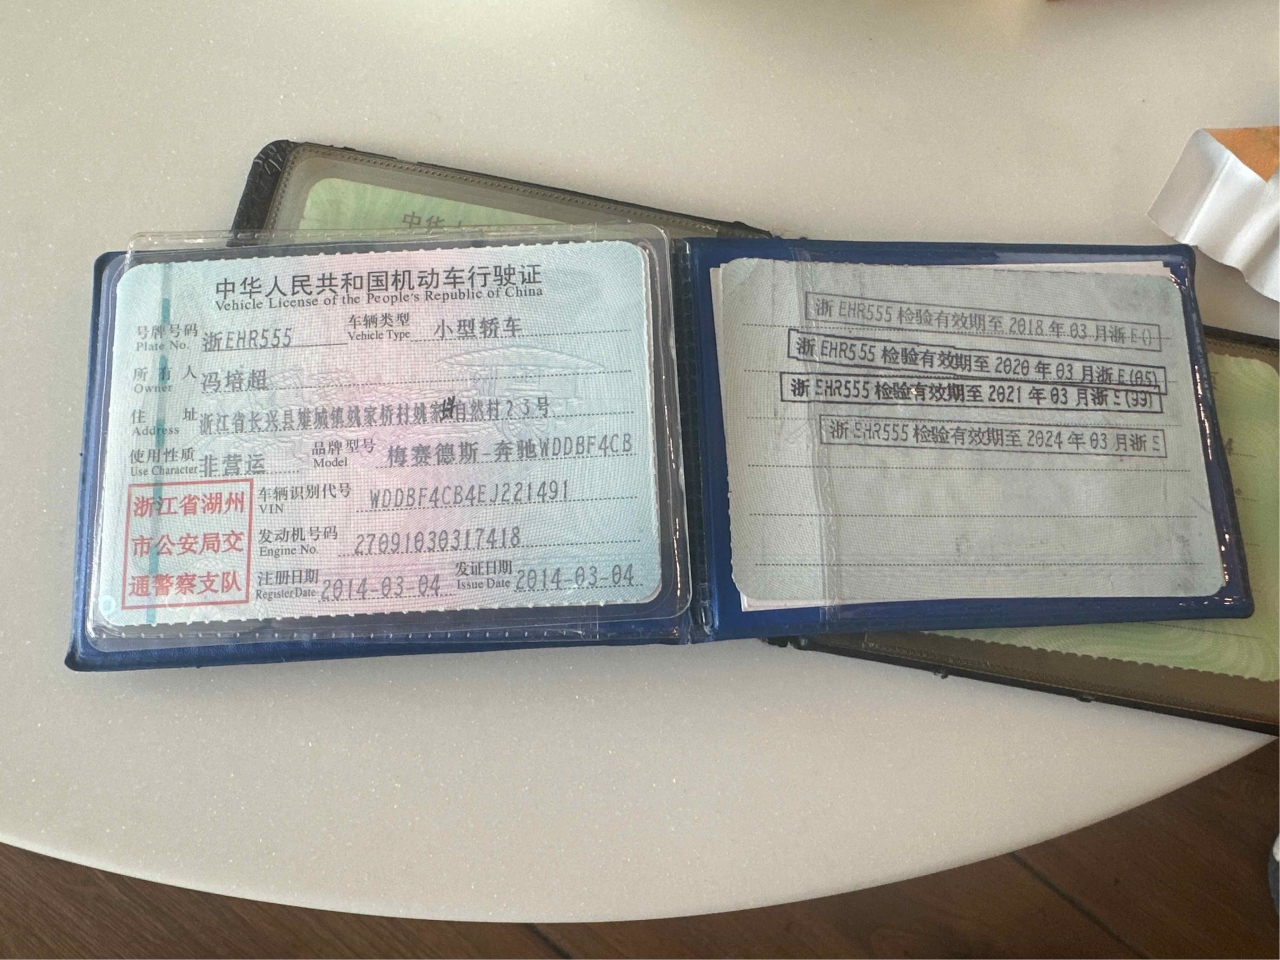 中华人
中华人民共和国机动车行驶证
Vehicle License of the People's Republic of China
号牌号码 浙EHR555 车辆类型 小型轿车
Plate No. Vehicle Type
所有人 冯培超
Owner
住址 浙江省长兴县雉城镇姚家桥村姚家自然村23号
Address
使用性质 非营运 品牌型号 梅赛德斯-奔驰WDDBF4CB
Use Character Model
浙江省湖州
市公安局交
通警察支队
车辆识别代号 WDDBF4CB4EJ221491
VIN
发动机号码 27091030317418
Engine No.
注册日期 2014-03-04 发证日期 2014-03-04
Register Date Issue Date
浙EHR555检验有效期至2018年03月浙E()
浙EHR555检验有效期至2020年03月浙E(05)
浙EHR555检验有效期至2021年03月浙E(99)
浙EHR555检验有效期至2024年03月浙E